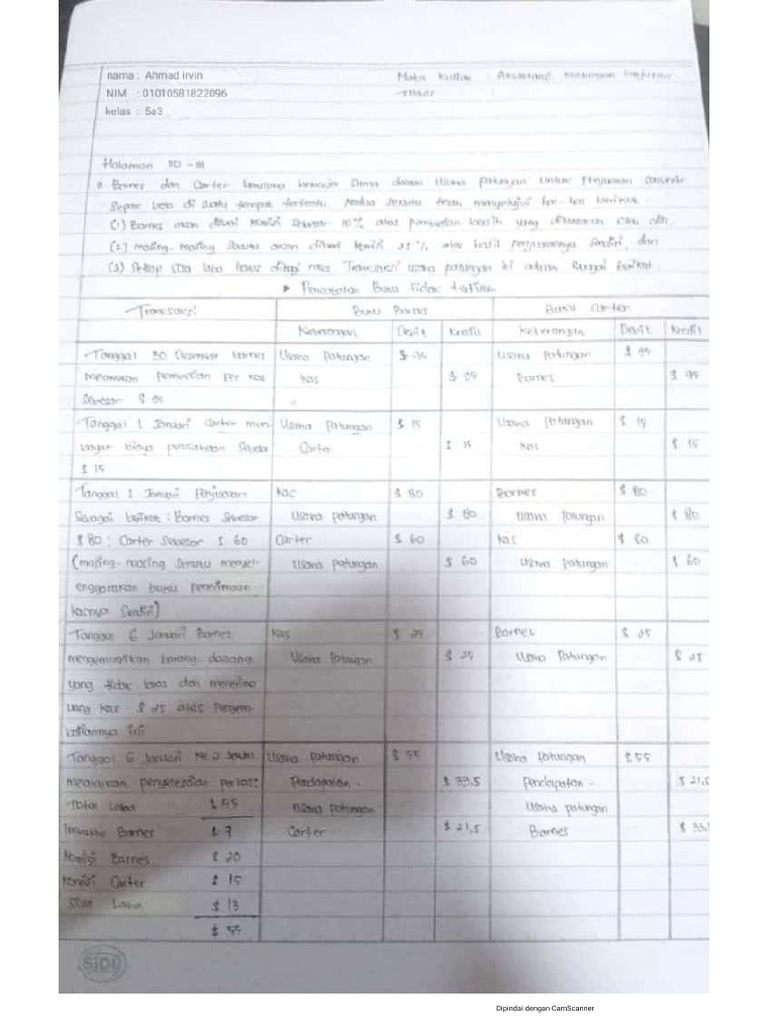 nama : Ahmad irvin
NIM : 01010581822096
kelas : 5a3
Mata Kuliah : Akuntansi keuangan lanjutan
Halaman 110 - 111
Barnes dan Carter bekerja sama dalam usaha patungan untuk penjualan
di suatu tempat tertentu
(1) Barnes akan diberi komisi sebesar 10% atas pembelian bersih yang dilakukan oleh
(2) masing-masing sekutu akan diberi komisi 25% atas hasil penjualannya sendiri, dan
(3) Setiap sisa laba harus dibagi rata. Transaksi usaha patungan ini adalah sebagai berikut.
Pencatatan Buku Tidak terpisah
Transaksi Buku Barnes Buku Carter
Keterangan Debit Kredit Keterangan Debit Kredit
Tanggal 30 Desember Barnes Usaha patungan Usaha Patungan
melakukan pembelian per kas Kas Barnes $ 95
sebesar
Tanggal 1 Januari Carter mem Usaha Patungan $ 15 Usaha Patungan $ 15
bayar biaya perusahaan sebesar Carter $ 15 Kas $ 15
$ 15
Tanggal 1 Januari Penjualan Kas $ 80 Barnes $ 80
Sebagai berikut : Barnes sebesar Usaha patungan $ 80 Usaha patungan $ 80
$ 80 ; Carter Sebesar $ 60 Carter $ 60 Kas $ 60
(masing-masing sekutu menyel- Usaha patungan $ 60 Usaha patungan $ 60
enggarakan buku penerimaan
kasnya sendiri)
Tanggal 6 Januari Barnes Kas $ 25 Barnes $ 25
mengembalikan barang dagang Usaha Patungan $ 25 Usaha Patungan $ 25
yang tidak laku dan menerima
uang kas $ 25 atas pengem-
baliannya ini
Tanggal 6 Januari ke 2 sekutu Usaha patungan $ 55 Usaha patungan $ 55
melakukan penyelesaian per kas: Pendapatan - $ 33,5 Pendapatan - $ 21,5
Total Laba $ 55 Usaha patungan Usaha patungan
Barnes $ 7 Carter $ 21,5 Barnes $ 33,
Komisi Barnes $ 20
Komisi Carter $ 15
Sisa Laba $ 13
$ 55
SIDU
Dipindai dengan CamScanner